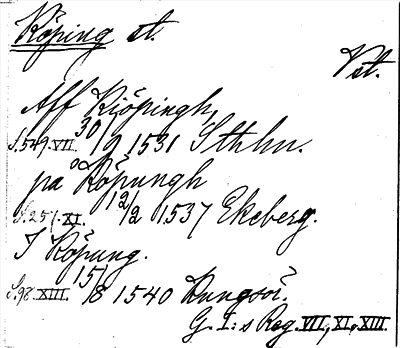 Köping st.
Vst.
Aff Kiöpingh,
S.549.VII. 30/9 1531 Sthlm.
på Köpungh
S.251.XI. 12/2 1537 Ekeberg.
I Köpung.
S.98.XIII. 15/8 1540 Kungsör.
G. I:s Reg. VII, XI, XIII.